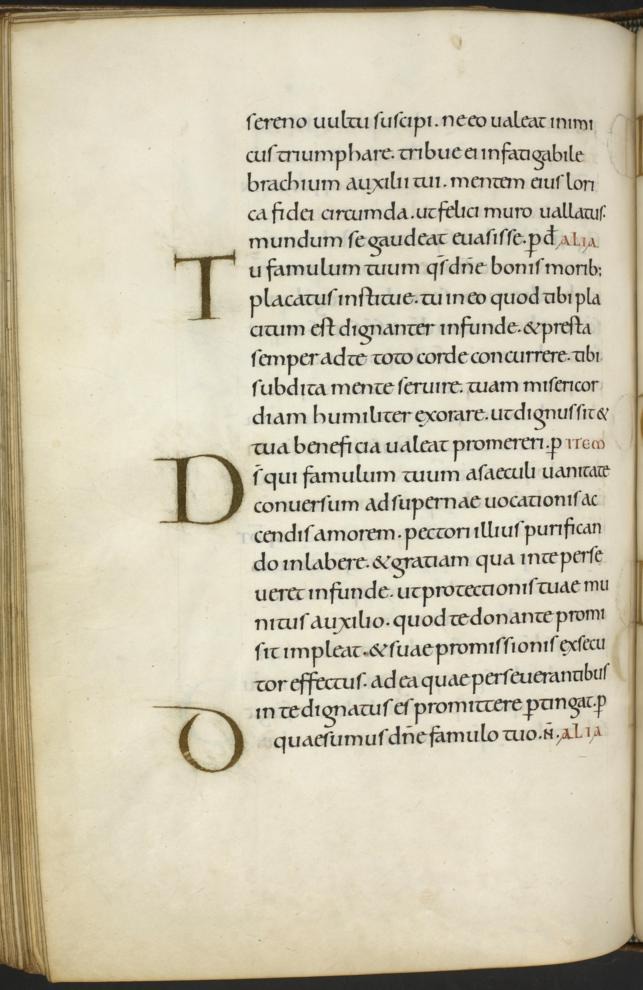 sereno uultu suscipi. ne eo ualeat inimi
cus triumphare. tribue ei infatigabile
brachium auxilii tui. mentem eius lori
ca fidei circumda. ut felici muro uallatus.
mundum se gaudeat euasisse. ꝑ dn̄ ALIA
Tu famulum tuum qs̄ dn̄e bonis morib;
placatus institue. tu in eo quod tibi pla
citum est dignanter infunde. & presta
semper ad te toto corde concurrere. tibi
subdita mente seruire. tuam misericor
diam humiliter exorare. ut dignus sit &
tua beneficia ualeat promereri. ꝑ ITEM
Ds̄ qui famulum tuum a saeculi uanitate
conuersum ad supernae uocationis ac
cendis amorem. pectori illius purifican
do inlabere. & gratiam qua in te perse
ueret infunde. ut protectionis tuae mu
nitus auxilio. quod te donante promi
sit impleat. & suae promissionis exsecu
tor effectus. ad ea quae perseuerantibus
in te dignatus es promittere ꝑtingat. ꝑ
Da quaesumus dn̄e famulo tuo. N̄. ALIA